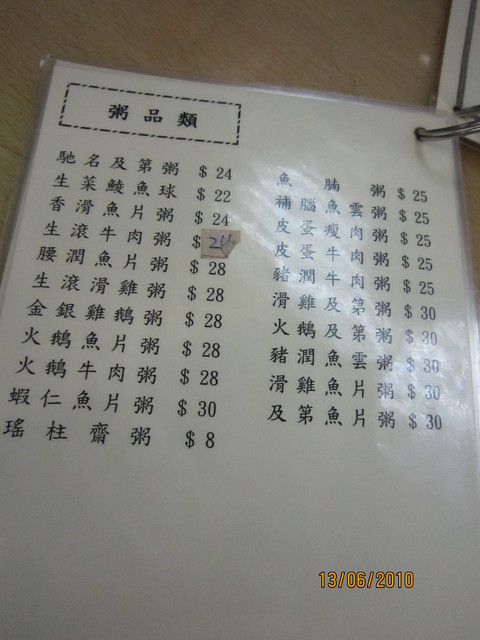 粥品類
馳名及第粥 $24
生菜鯪魚球 $22
香滑魚片粥 $24
生滾牛肉粥 $24
腰潤魚片粥 $28
生滾滑雞粥 $28
金銀雞鵝粥 $28
火鵝魚片粥 $28
火鵝牛肉粥 $28
蝦仁魚片粥 $30
瑤柱齋粥 $8
魚腩粥 $25
補腦魚雲粥 $25
皮蛋瘦肉粥 $25
皮蛋牛肉粥 $25
豬潤牛肉粥 $25
滑雞及第粥 $30
火鵝及第粥 $30
豬潤魚雲粥 $30
滑雞魚片粥 $30
及第魚片粥 $30
13/06/2010